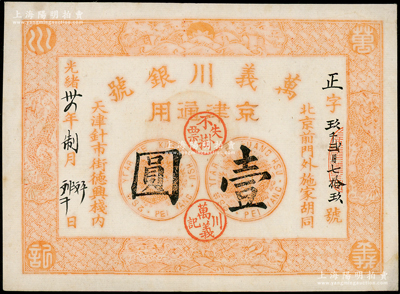 上海陽明拍賣
萬義川銀號
京津通用
正字玖千貳百七拾玖號
北京前門外施家胡同
失票不掛
壹圓
萬義川記
天津針市街德興棧內
光緒卅年制月日
萬
義
川
記
上海陽明拍賣